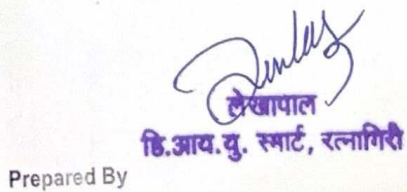 लेखापाल
डि.आय.यु. स्मार्ट, रत्नागिरी
Prepared By